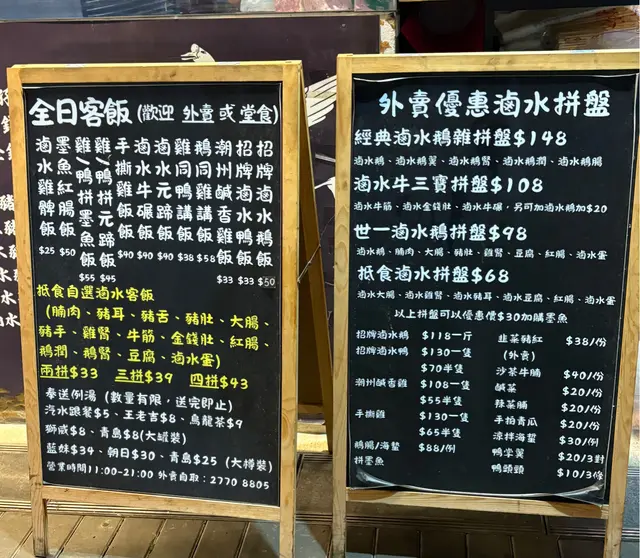 全日客飯 (歡迎 外賣 或 堂食)
招牌滷水鵝飯 $50
招牌滷水鴨飯 $33
潮州鹹香雞飯 $33
鵝同雞講飯 $58
雞同鴨講飯 $38
滷水元蹄飯 $40
滷水牛碾飯 $40
手撕雞飯 $40
雞/鴨拼元蹄飯 $45
雞/鴨拼墨魚飯 $55
墨魚紅腸飯 $50
滷水雞髀飯 $25
抵食自選滷水客飯
(腩肉、豬耳、豬舌、豬肚、大腸、
豬手、雞腎、牛筋、金錢肚、紅腸、
鵝潤、鵝腎、豆腐、滷水蛋)
兩拼$33 三拼$39 四拼$43
奉送例湯 (數量有限，送完即止)
汽水跟餐$5、王老吉$8、烏龍茶$9
獅威$8、青島$8(大罐裝)
藍妹$34、朝日$30、青島$25 (大樽裝)
營業時間11:00-21:00 外賣自取：2770 8805
外賣優惠滷水拼盤
經典滷水鵝雜拼盤$148
滷水鵝、滷水鵝翼、滷水鵝腎、滷水鵝潤、滷水鵝腸
滷水牛三寶拼盤$108
滷水牛筋、滷水金錢肚、滷水牛碾，另可加滷水鵝加$20
世一滷水鵝拼盤$98
滷水鵝、腩肉、大腸、豬肚、雞腎、豆腐、紅腸、滷水蛋
抵食滷水拼盤$68
滷水大腸、滷水雞腎、滷水豬耳、滷水豆腐、紅腸、滷水蛋
以上拼盤可以優惠價$30加購墨魚
招牌滷水鵝 $118一斤
招牌滷水鴨 $130一隻
$70半隻
潮州鹹香雞 $108一隻
$55半隻
手撕雞 $130一隻
$65半隻
鵝腸/海蜇 $88/例
拼墨魚
韭菜豬紅 $38/份
(外賣)
沙茶牛腩 $40/份
鹹菜 $20/份
辣菜脯 $20/份
手拍青瓜 $20/份
涼拌海蜇 $30/例
鴨掌翼 $20/3對
鴨頭頸 $10/3條